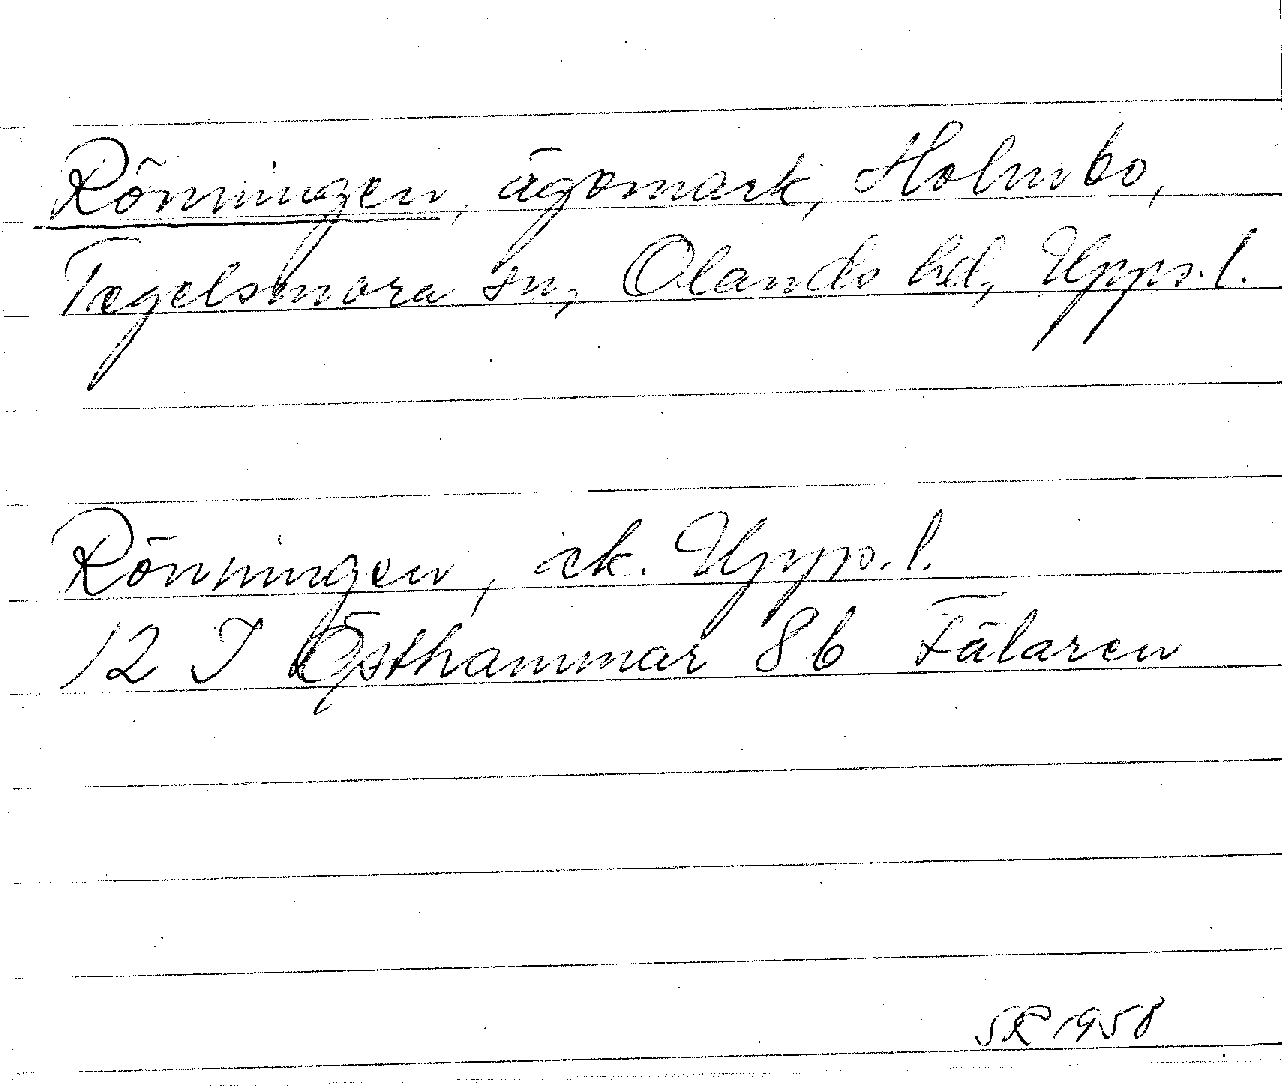 Rönningen, ägomark, Holmbo,
Tegelsmora sn, Olands hd, Upps. l.
Rönningen, ek. Upps. l.
12 I Östhammar 8b Fälaren
SR 1958